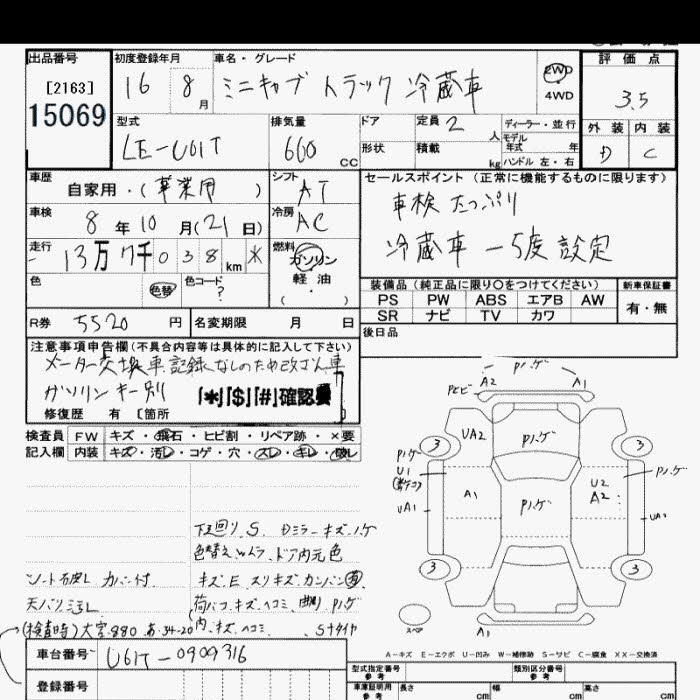 出品番号
[2163]
15069
初度登録年月
16 8 月
車名・グレード
ミニキャブ トラック 冷蔵車
2WD
4WD
評価点
3.5
外装 内装
D C
型式
LE-U61T
排気量
660 cc
ドア
形状
定員 2 人
積載 kg
ディーラー・並行
モデル年式 年
ハンドル 左・右
車歴
自家用・(事業用)
シフト
AT
車検
8 年 10 月(21 日)
冷房
AC
走行
13万7千038 km *
燃料
ガソリン
軽油
( ・ )
色
色替
色コード
?
R券 5520 円
名変期限 月 日
セールスポイント(正常に機能するものに限ります)
車検 たっぷり
冷蔵車 -5度設定
装備品(純正品に限り○をつけてください)
PS PW ABS エアB AW
SR ナビ TV カワ
新車保証書
有・無
後日品
注意事項申告欄(不具合内容等は具体的に記入して下さい)
メーター交換車記録なしのため改ざん車
ガソリンキー別
「*」「$」「#」確認
修復歴 有 [箇所
検査員記入欄
FW キズ・飛石・ヒビ割・リペア跡・×要
内装 キズ・汚レ・コゲ・穴・スレ・キレ・破レ
下回りS Dミラーキズハゲ
色替えムラ ドア内元色
シート破レ カバー付
キズ、E、スリキズ、カンバン
天バリシミ
荷バコ、キズ、ヘコミ、曲り、Pハゲ
内、キズ、ヘコミ、 Sタイヤ
(検査時)大宮 880 あ 34-20
車台番号 U61T-0909316
登録番号
Pハゲ
A2 A1
Pヒビ
UA2
Pハゲ
3 3
Pハゲ
U1
UA1
A1
Pハゲ
U2
A2
Pハゲ
UA2
3 3
スペア
A1
A-キズ E-エクボ U-凹み W-補修跡 S-サビ C-腐食 XX-交換済
型式指定番号 参考
類別区分番号 参考
車庫証明用 参考
長さ cm
幅 cm
高さ cm